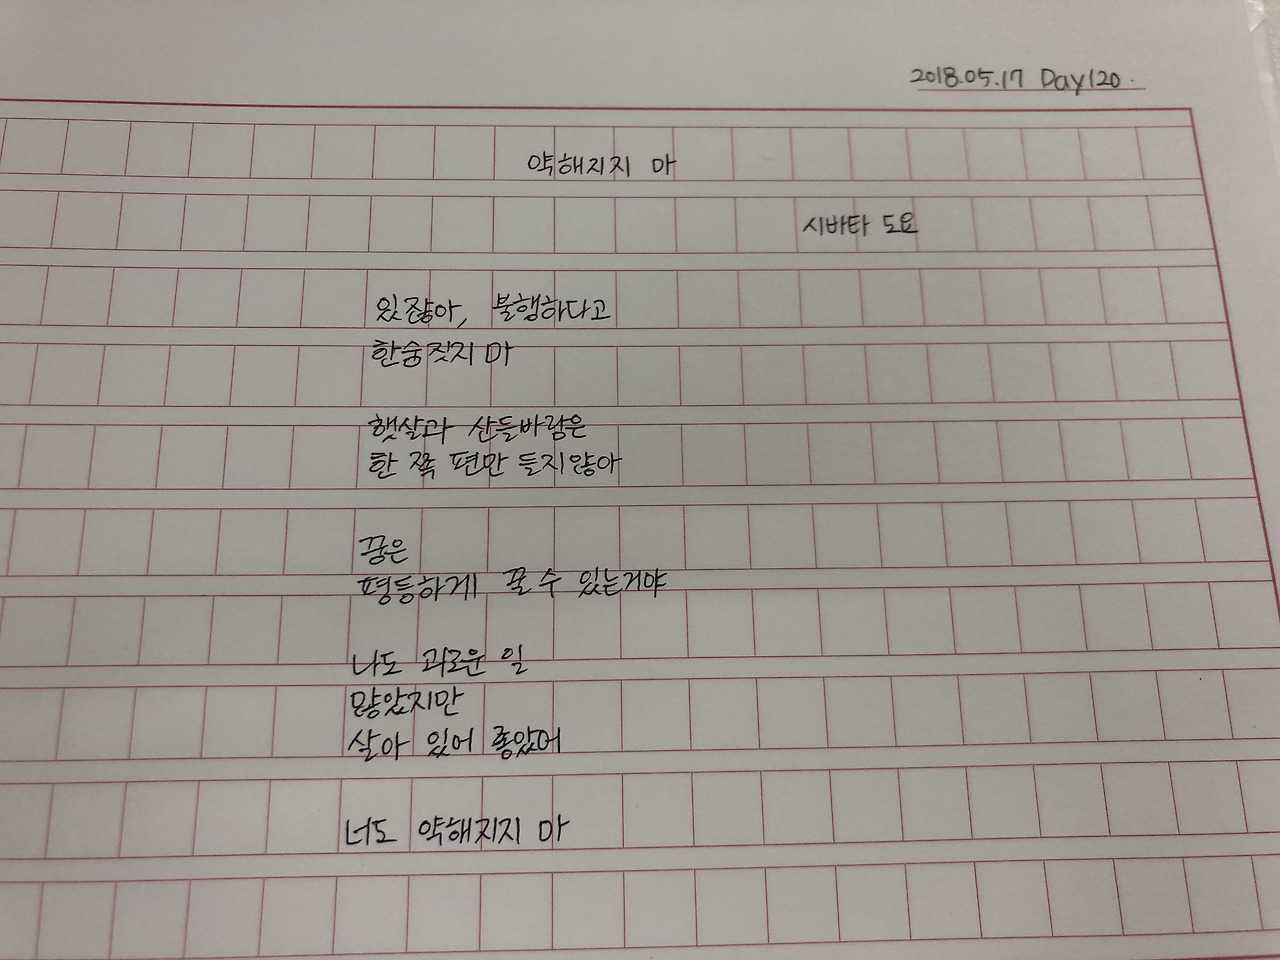 2018.05.17 Day120.
약해지지 마
시바타 도요
있잖아, 불행하다고
한숨짓지 마
햇살과 산들바람은
한 쪽 편만 들지않아
꿈은
평등하게 꿀 수 있는거야
나도 괴로운 일
많았지만
살아 있어 좋았어
너도 약해지지 마